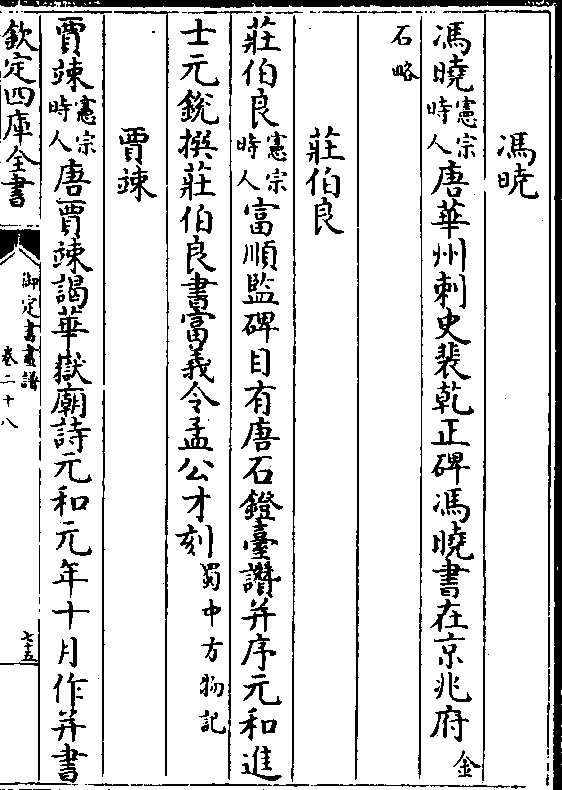 馮曉
馮曉憲宗時人唐華州刺史裴乾正碑馮曉書在京兆府金
石略
莊伯良
莊伯良憲宗時人富順監碑目有唐石鐙臺讚并序元和進
士元銳撰莊伯良書富義令孟公才刻蜀中方物記
賈竦
賈竦憲宗時人唐賈竦謁華嶽廟詩元和元年十月作并書
欽定四庫全書
御定書畫譜
卷二十八
七十五